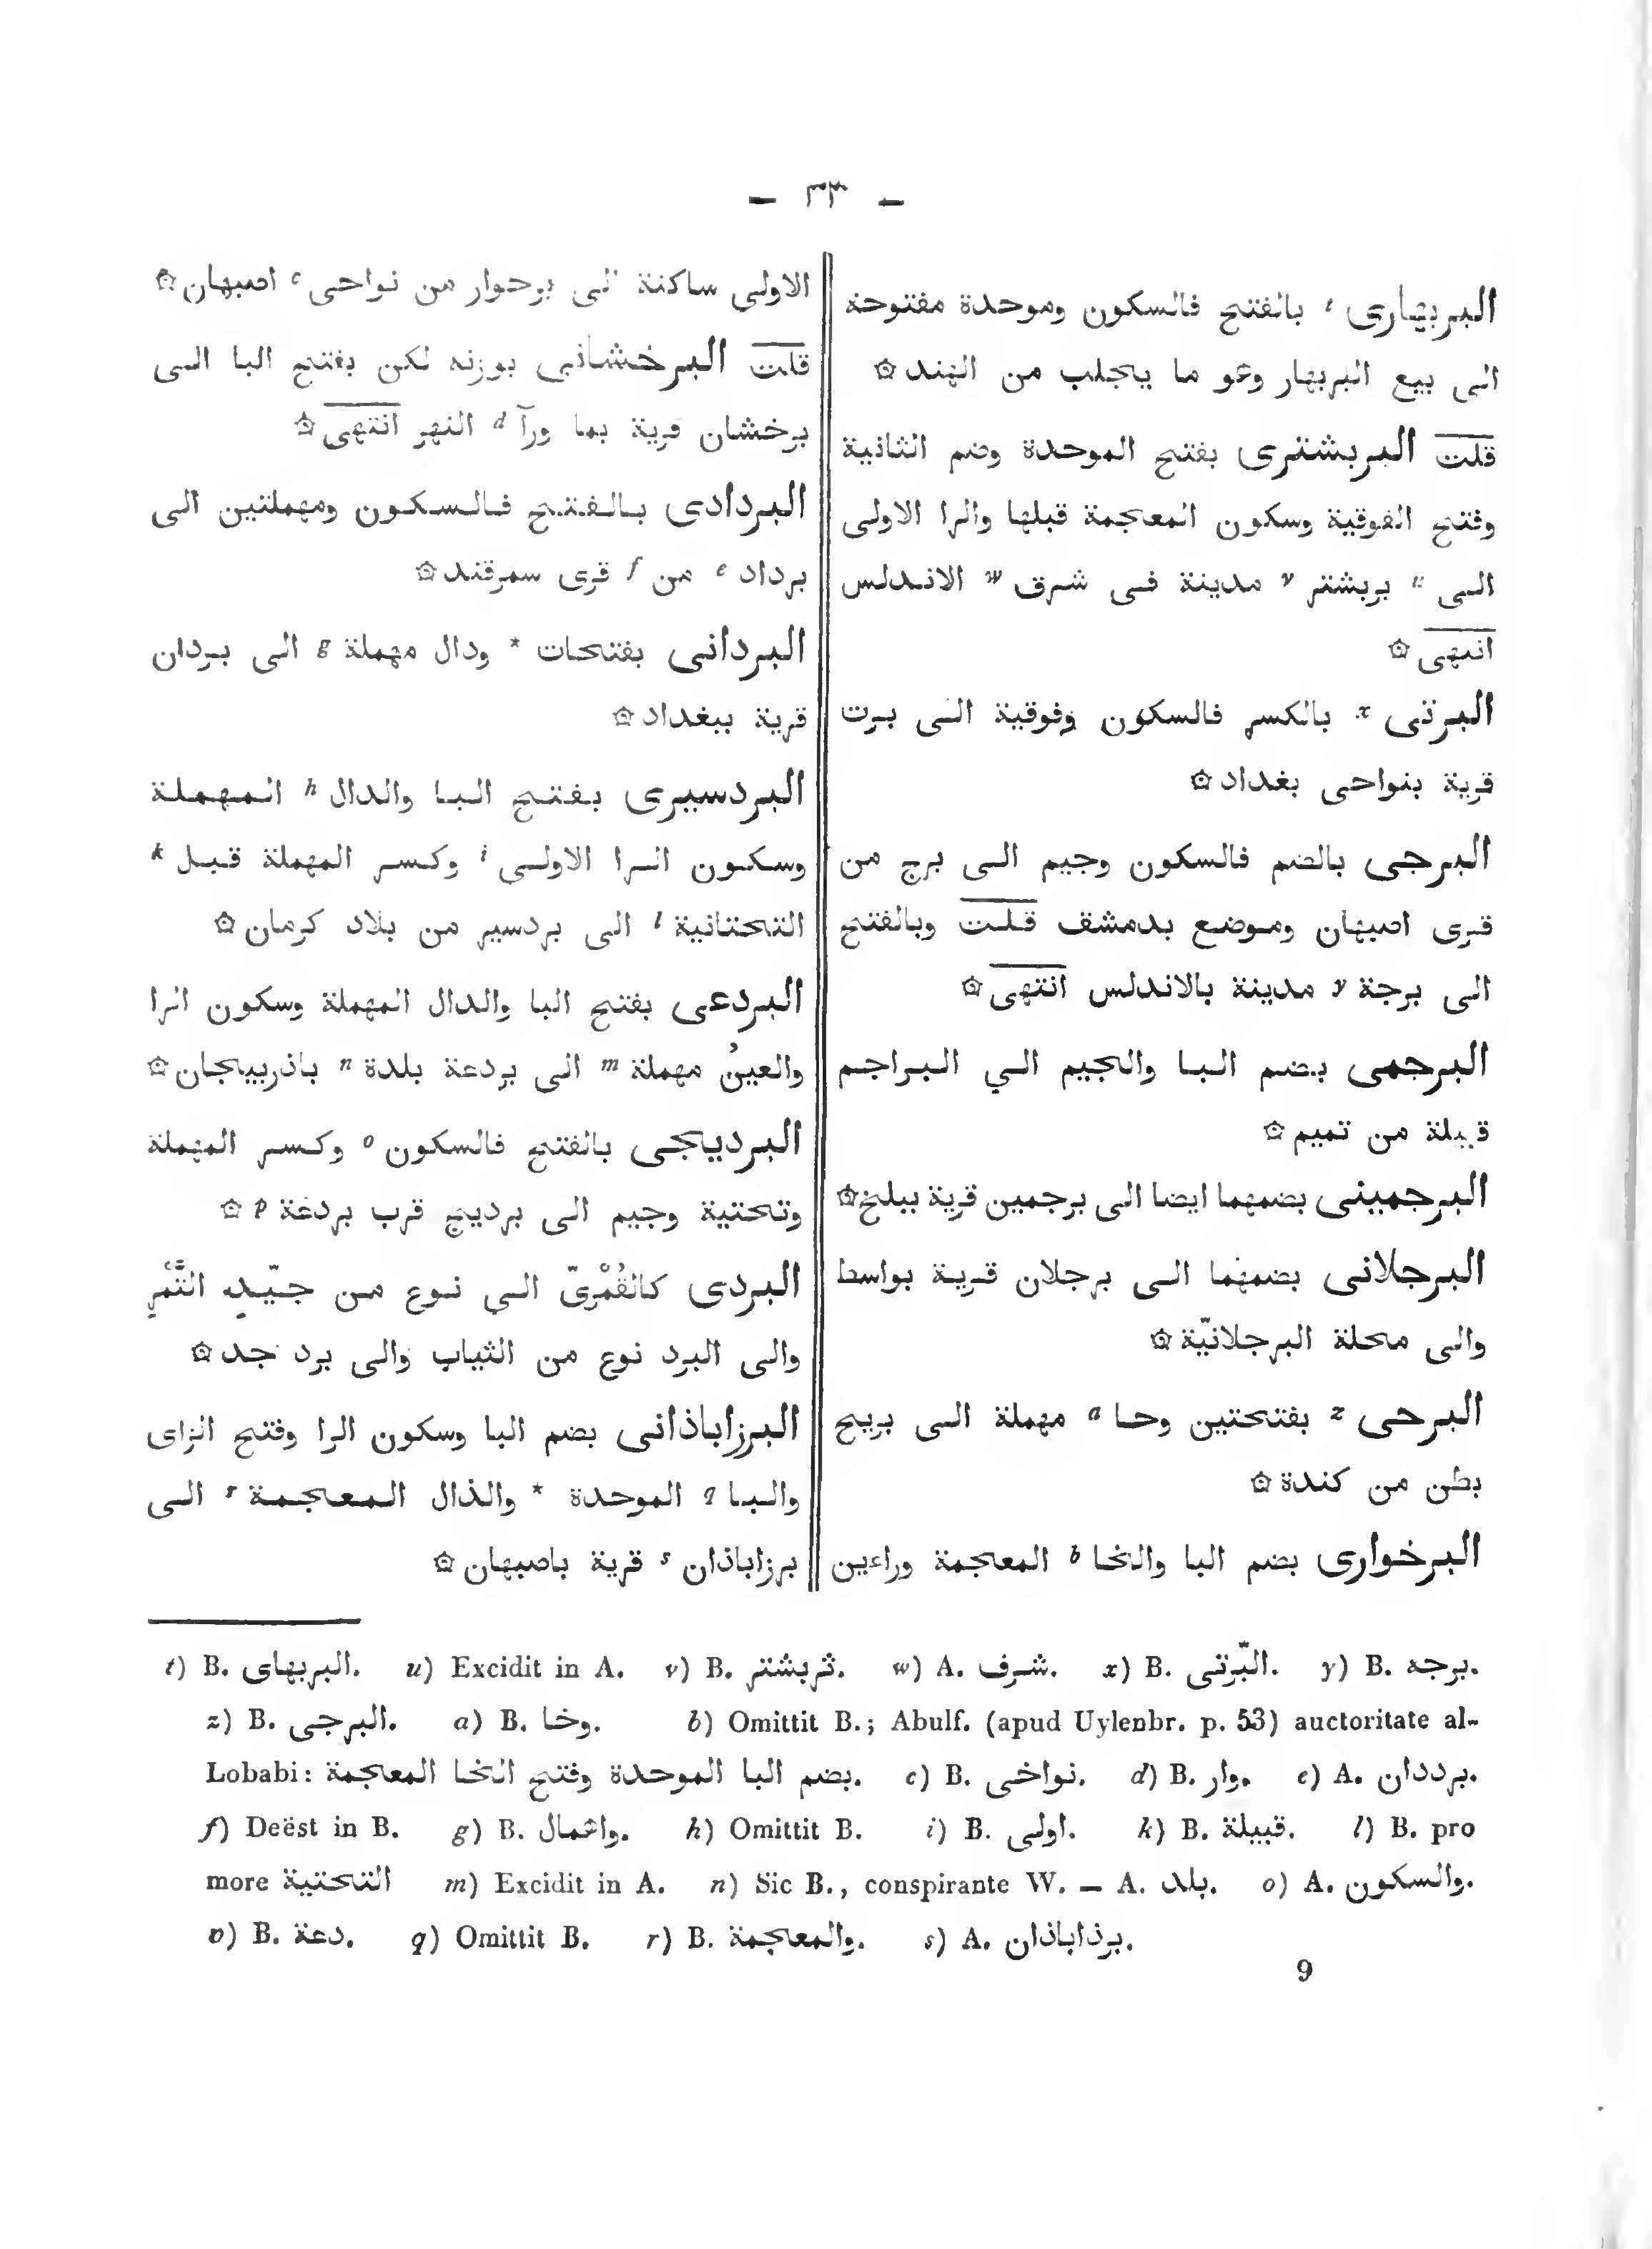 — ٣٣ —
البربهارى t بالفتح فالسكون وموحدة مفتوحة
الى بيع البربهار وهو ما يجلب من الهند ۞
قلت البربشترى بفتح الموحدة وضم الثانية
وفتح الفوقية وسكون المعجمة قبلها والرا الاولى
الى u بربشتر v مدينة فى شرق w الاندلس
انتهى ۞
البرتى x بالكسر فالسكون وفوقية الى برت
قرية بنواحى بغداد ۞
البرجى بالضم فالسكون وجيم الى برج من
قرى اصبهان وموضع بدمشق قلت وبالفتح
الى برجة y مدينة بالاندلس انتهى ۞
البرجمى بضم البا والجيم الي البراجم
قبيلة من تميم ۞
البرجمينى بضمهما ايضا الى برجمين قرية ببلخ ۞
البرجلانى بضمهما الى برجلان قرية بواسط
والى محلة البرجلانيّة ۞
البرحى z بفتحتين وحا a مهملة الى بريح
بطن من كندة ۞
البرخوارى بضم البا والخا b المعجمة وراءين
الاولى ساكنة الى برخوار من نواحى c اصبهان ۞
قلت البرخشانى بوزنه لكن بفتح البا الى
برخشان قرية بما ورآ d النهر انتهى ۞
البردادى بالفتح فالسكون ومهملتين الى
برداد e من f قرى سمرقند ۞
البردانى بفتحات * ودال مهملة g الى بردان
قرية ببغداد ۞
البردسيرى بفتح البا والدال h المهملة
وسكون الرا الاولى i وكسر المهملة قبل k
التحتانية l الى بردسير من بلاد كرمان ۞
البردعى بفتح البا والدال المهملة وسكون الرا
والعين مهملة m الى بردعة بلدة n باذربيجان ۞
البرديجى بالفتح فالسكون o وكسر المهملة
وتحتية وجيم الى برديج قرب بردعة p ۞
البردى كالقُمْرِىّ الي نوع من جيّدِ التَّمْرِ
والى البرد نوع من الثياب والى برد جد ۞
البرزاباذانى بضم البا وسكون الرا وفتح الزاى
والبا q الموحدة * والذال المعجمة r الى
برزاباذان s قرية باصبهان ۞
t) B. البربهاى. u) Excidit in A. v) B. ثربشتر. w) A. شرف. x) B. البّرتى. y) B. برجه.
z) B. البرجى. a) B. وخا. b) Omittit B.; Abulf. (apud Uylenbr. p. 53) auctoritate al-
Lobabi: بضم البا الموحدة وفتح الخا المعجمة. c) B. نواخى. d) B. وار. e) A. برددان.
f) Deëst in B. g) B. واعمال. h) Omittit B. i) B. اولى. k) B. قبيلة. l) B. pro
more التحتية m) Excidit in A. n) Sic B., conspirante W. — A. بلد. o) A. والسكون.
p) B. دعة. q) Omittit B. r) B. والمعجمة. s) A. برذاباذان.
9